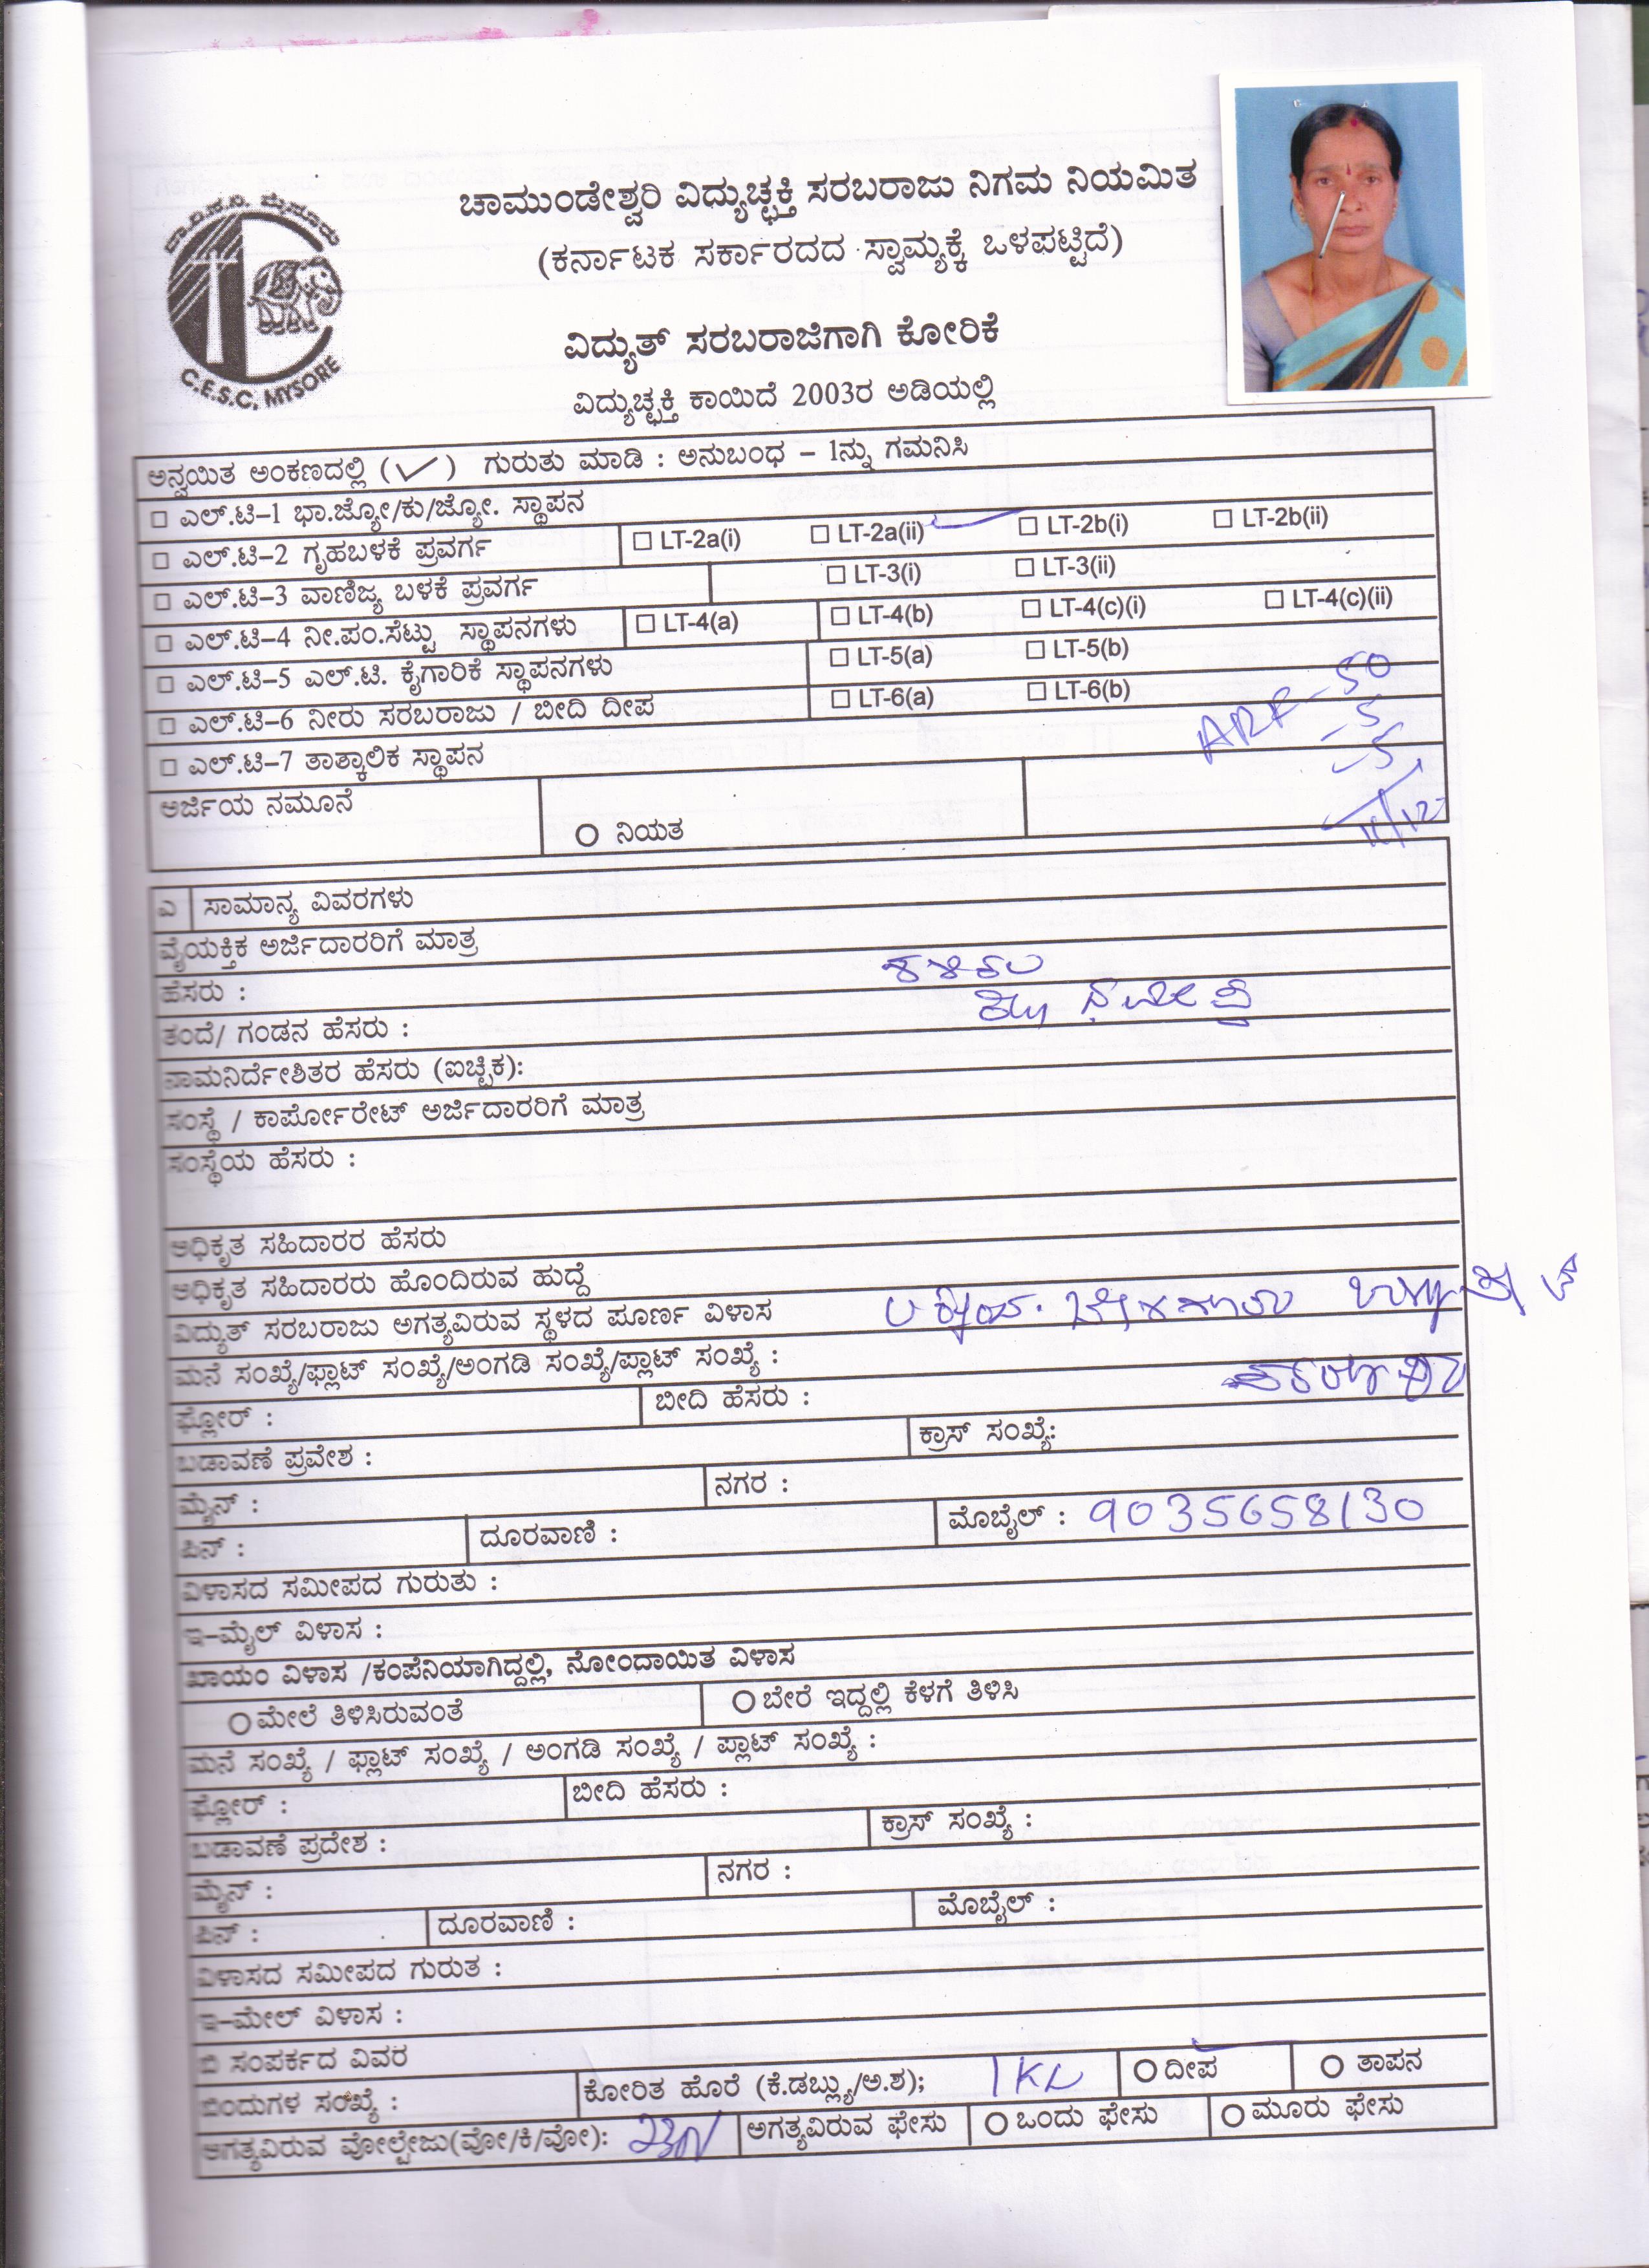 ಚಾ.ವಿ.ಸ.ನಿ. ಮೈಸೂರು
C.E.S.C, MYSORE
ಚಾಮುಂಡೇಶ್ವರಿ ವಿದ್ಯುಚ್ಛಕ್ತಿ ಸರಬರಾಜು ನಿಗಮ ನಿಯಮಿತ
(ಕರ್ನಾಟಕ ಸರ್ಕಾರದದ ಸ್ವಾಮ್ಯಕ್ಕೆ ಒಳಪಟ್ಟಿದೆ)
ವಿದ್ಯುತ್ ಸರಬರಾಜಿಗಾಗಿ ಕೋರಿಕೆ
ವಿದ್ಯುಚ್ಛಕ್ತಿ ಕಾಯಿದೆ 2003ರ ಅಡಿಯಲ್ಲಿ
ಅನ್ವಯಿತ ಅಂಕಣದಲ್ಲಿ (✓) ಗುರುತು ಮಾಡಿ : ಅನುಬಂಧ – 1ನ್ನು ಗಮನಿಸಿ
ಎಲ್.ಟಿ–1 ಭಾ.ಜ್ಯೋ/ಕು/ಜ್ಯೋ. ಸ್ಥಾಪನ
ಎಲ್.ಟಿ–2 ಗೃಹಬಳಕೆ ಪ್ರವರ್ಗ LT-2a(i) LT-2a(ii) LT-2b(i) LT-2b(ii)
ಎಲ್.ಟಿ–3 ವಾಣಿಜ್ಯ ಬಳಕೆ ಪ್ರವರ್ಗ LT-3(i) LT-3(ii)
ಎಲ್.ಟಿ–4 ನೀ.ಪಂ.ಸೆಟ್ಟು ಸ್ಥಾಪನಗಳು LT-4(a) LT-4(b) LT-4(c)(i) LT-4(c)(ii)
ಎಲ್.ಟಿ–5 ಎಲ್.ಟಿ. ಕೈಗಾರಿಕೆ ಸ್ಥಾಪನಗಳು LT-5(a) LT-5(b)
ಎಲ್.ಟಿ–6 ನೀರು ಸರಬರಾಜು / ಬೀದಿ ದೀಪ LT-6(a) LT-6(b)
ARF - 50
- 5
- 5
ಎಲ್.ಟಿ–7 ತಾತ್ಕಾಲಿಕ ಸ್ಥಾಪನ
ಅರ್ಜಿಯ ನಮೂನೆ ನಿಯತ
ಎ ಸಾಮಾನ್ಯ ವಿವರಗಳು
ವೈಯಕ್ತಿಕ ಅರ್ಜಿದಾರರಿಗೆ ಮಾತ್ರ
ಹೆಸರು :
ತಂದೆ/ ಗಂಡನ ಹೆಸರು :
ನಾಮನಿರ್ದೇಶಿತರ ಹೆಸರು (ಐಚ್ಚಿಕ):
ಸಂಸ್ಥೆ / ಕಾರ್ಪೋರೇಟ್ ಅರ್ಜಿದಾರರಿಗೆ ಮಾತ್ರ
ಸಂಸ್ಥೆಯ ಹೆಸರು :
ಅಧಿಕೃತ ಸಹಿದಾರರ ಹೆಸರು
ಅಧಿಕೃತ ಸಹಿದಾರರು ಹೊಂದಿರುವ ಹುದ್ದೆ
ವಿದ್ಯುತ್ ಸರಬರಾಜು ಅಗತ್ಯವಿರುವ ಸ್ಥಳದ ಪೂರ್ಣ ವಿಳಾಸ
ಮನೆ ಸಂಖ್ಯೆ/ಫ್ಲಾಟ್ ಸಂಖ್ಯೆ/ಅಂಗಡಿ ಸಂಖ್ಯೆ/ಪ್ಲಾಟ್ ಸಂಖ್ಯೆ :
ಫ್ಲೋರ್ : ಬೀದಿ ಹೆಸರು :
ಬಡಾವಣೆ ಪ್ರವೇಶ : ಕ್ರಾಸ್ ಸಂಖ್ಯೆ:
ಮೈನ್ : ನಗರ :
ಪಿನ್ : ದೂರವಾಣಿ : ಮೊಬೈಲ್ : 9035658130
ವಿಳಾಸದ ಸಮೀಪದ ಗುರುತು :
ಇ–ಮೈಲ್ ವಿಳಾಸ :
ಖಾಯಂ ವಿಳಾಸ /ಕಂಪೆನಿಯಾಗಿದ್ದಲ್ಲಿ, ನೋಂದಾಯಿತ ವಿಳಾಸ
ಮೇಲೆ ತಿಳಿಸಿರುವಂತೆ ಬೇರೆ ಇದ್ದಲ್ಲಿ ಕೆಳಗೆ ತಿಳಿಸಿ
ಮನೆ ಸಂಖ್ಯೆ / ಫ್ಲಾಟ್ ಸಂಖ್ಯೆ / ಅಂಗಡಿ ಸಂಖ್ಯೆ / ಪ್ಲಾಟ್ ಸಂಖ್ಯೆ :
ಫ್ಲೋರ್ : ಬೀದಿ ಹೆಸರು :
ಬಡಾವಣೆ ಪ್ರದೇಶ : ಕ್ರಾಸ್ ಸಂಖ್ಯೆ :
ಮೈನ್ : ನಗರ :
ಪಿನ್ : ದೂರವಾಣಿ : ಮೊಬೈಲ್ :
ವಿಳಾಸದ ಸಮೀಪದ ಗುರುತ :
ಇ–ಮೇಲ್ ವಿಳಾಸ :
ಬಿ ಸಂಪರ್ಕದ ವಿವರ
ಬಿಂದುಗಳ ಸಂಖ್ಯೆ : ಕೋರಿತ ಹೊರೆ (ಕೆ.ಡಬ್ಲ್ಯು/ಅ.ಶ); 1 KL ದೀಪ ತಾಪನ
ಅಗತ್ಯವಿರುವ ವೋಲ್ಟೇಜು(ವೋ/ಕಿ/ವೋ): 230V ಅಗತ್ಯವಿರುವ ಫೇಸು ಒಂದು ಫೇಸು ಮೂರು ಫೇಸು